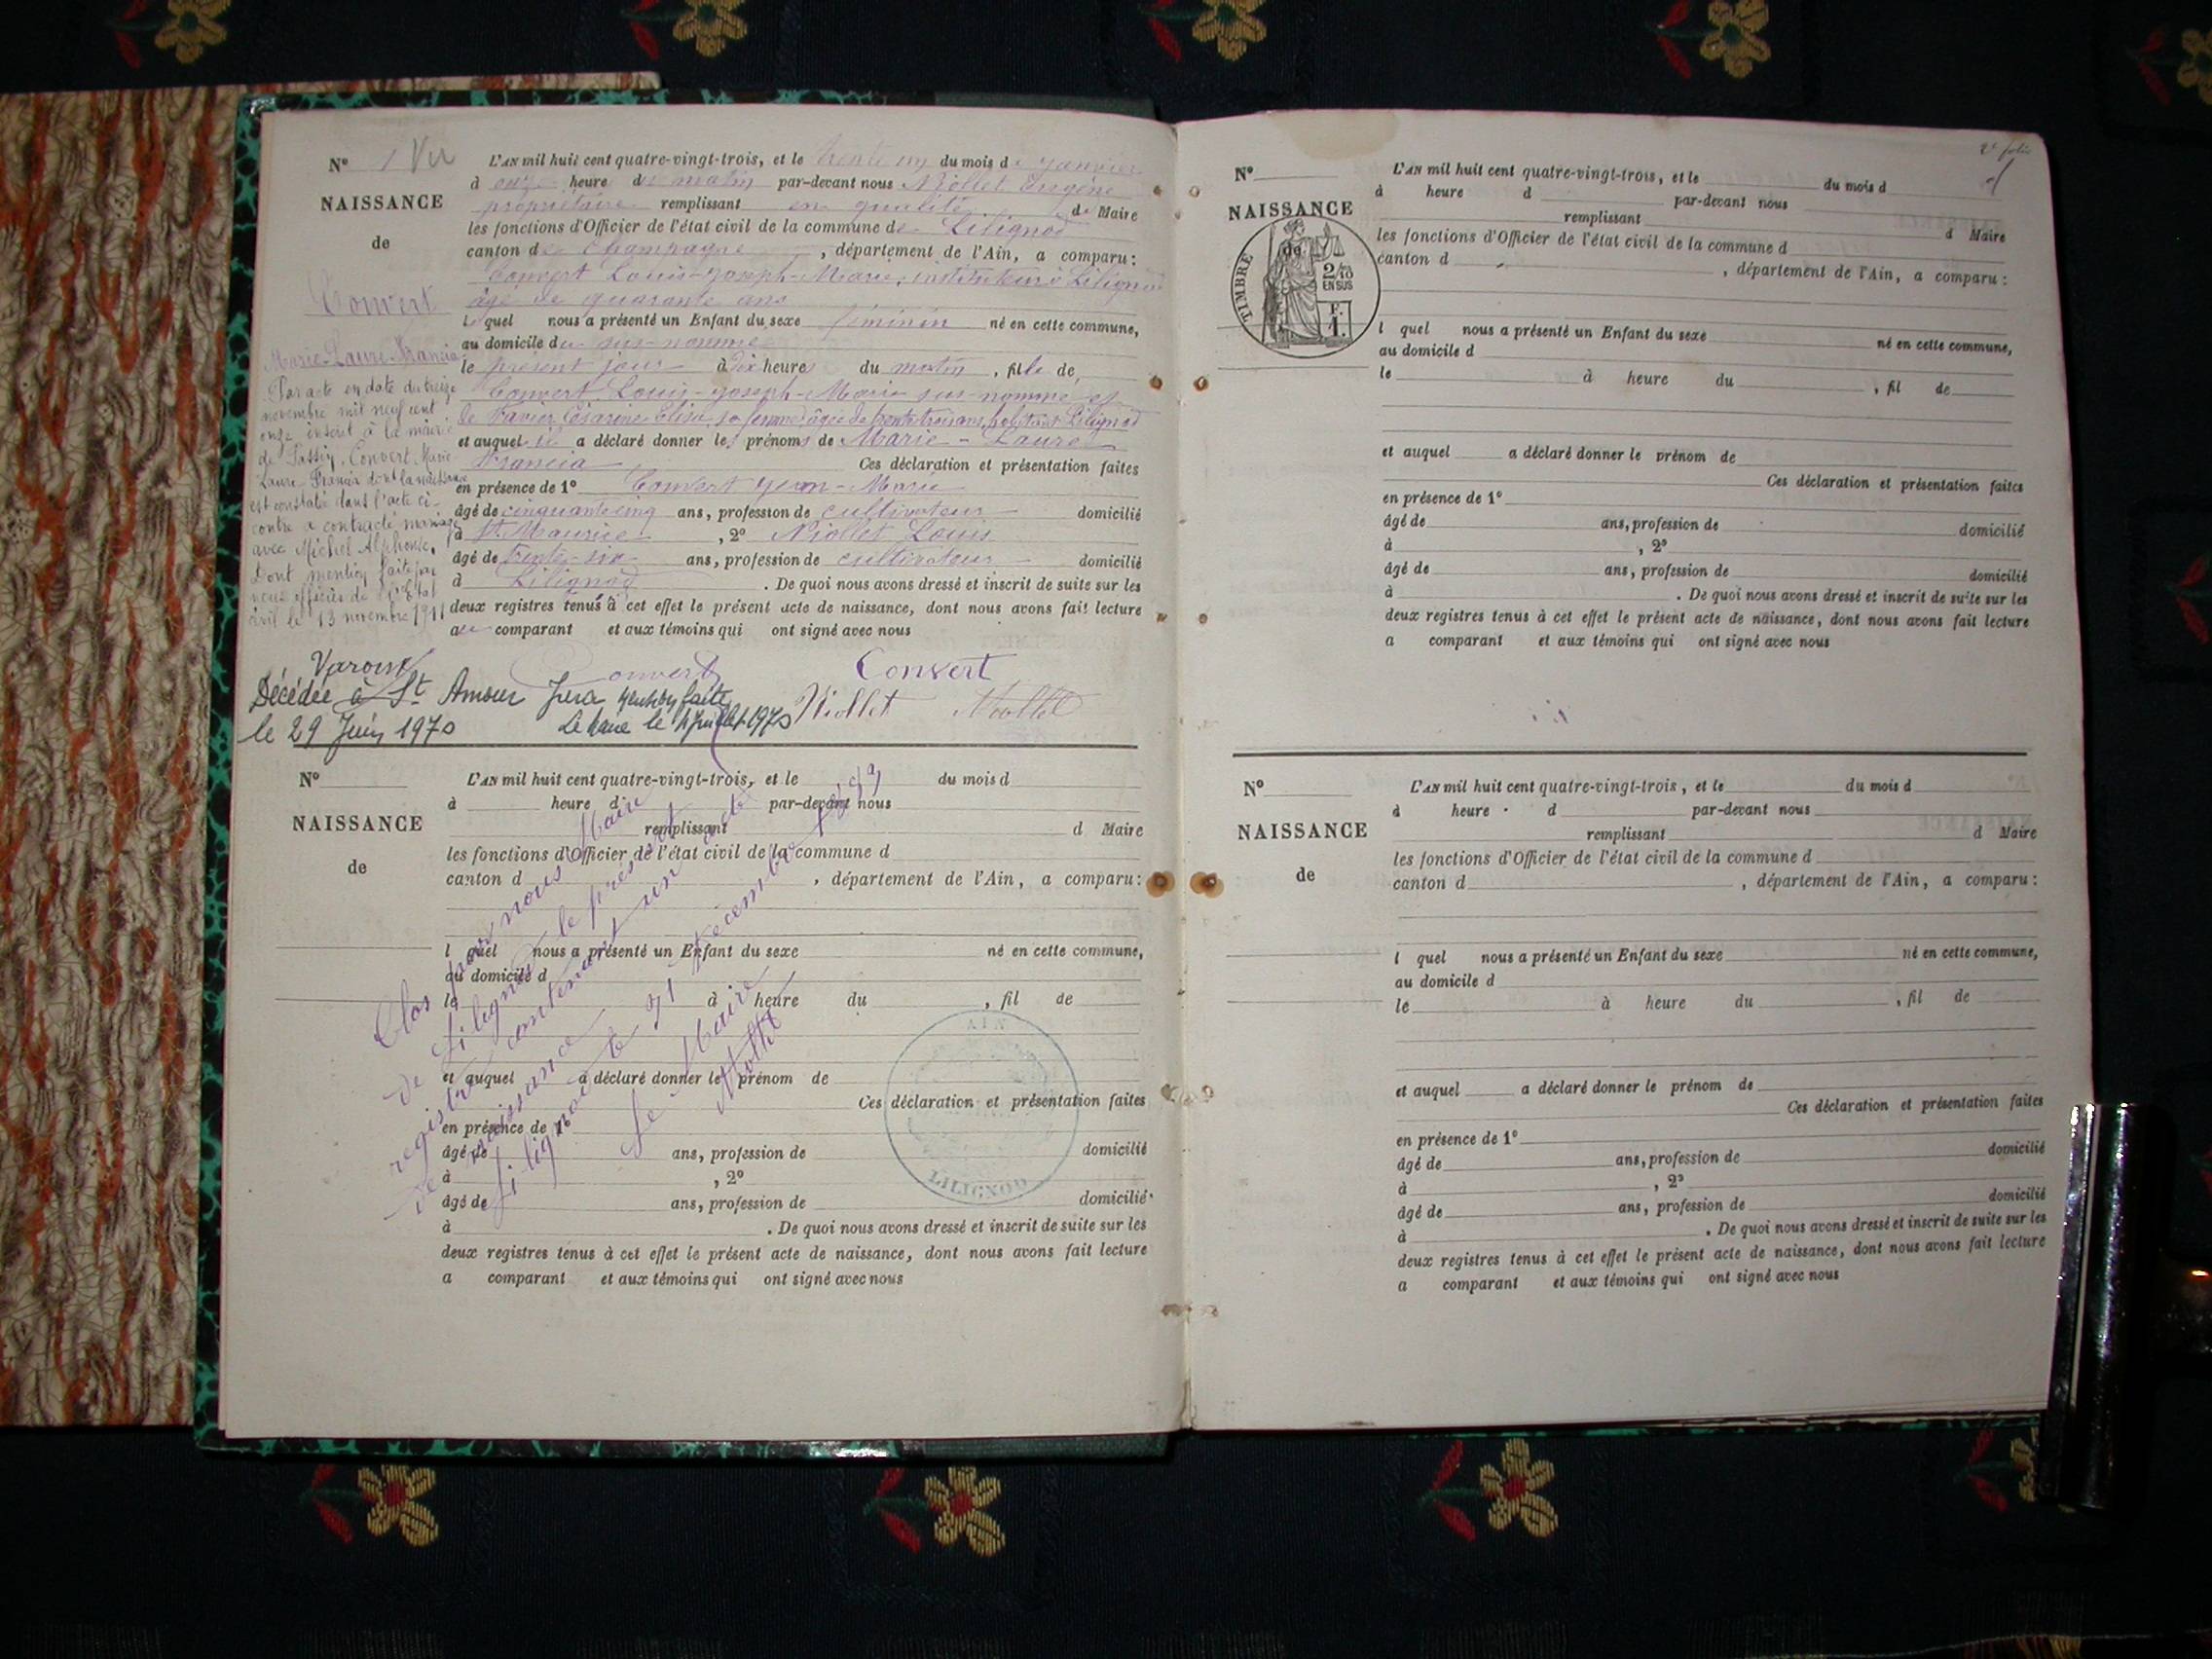 N° 1 Vu
NAISSANCE
de
Convert
Marie-Laure-Francia
Par acte en date du treize
novembre mil neuf cent
onze inscrit à la mairie
de Passin, Convert Marie
Laure Francia dont la naissance
est constatée dans l'acte ci-
contre a contracté mariage
avec Michel Alphonse,
Dont mention faite par
nous officier de l'Etat
civil le 13 novembre 1911
L'AN mil huit cent quatre-vingt-trois, et le trente un du mois de janvier
à onze heure du matin par-devant nous Niollet Eugène
propriétaire remplissant en qualité de Maire
les fonctions d'Officier de l'état civil de la commune de Lilignod
canton de Champagne, département de l'Ain, a comparu:
Convert Louis-Joseph-Marie, instituteur à Lilignod
âgé de quarante ans
lequel nous a présenté un Enfant du sexe féminin né en cette commune,
au domicile du sus-nommé
le présent jour à dix heures du matin, fille de
Convert Louis-Joseph-Marie sus-nommé et
de Favier Césarine Elisa, sa femme âgée de trente trois ans, habitant Lilignod
et auquel il a déclaré donner les prénoms de Marie-Laure
Francia Ces déclaration et présentation faites
en présence de 1° Convert Jean-Marie
âgé de cinquante cinq ans, profession de cultivateur domicilié
à St Maurice, 2° Niollet Louis
âgé de trente-six ans, profession de cultivateur domicilié
à Lilignod. De quoi nous avons dressé et inscrit de suite sur les
deux registres tenus à cet effet le présent acte de naissance, dont nous avons fait lecture
au comparant et aux témoins qui ont signé avec nous
Convert Convert
Niollet Niollet
Décédée à St Amour Jura mention faite
le 29 Juin 1970 Le Maire le 4 Juillet 1970
N°
NAISSANCE
de
L'AN mil huit cent quatre-vingt-trois, et le du mois d
à heure d par-devant nous
remplissant d Maire
les fonctions d'Officier de l'état civil de la commune d
canton d , département de l'Ain, a comparu:
l quel nous a présenté un Enfant du sexe né en cette commune,
au domicile d
le à heure du , fil de
et auquel a déclaré donner le prénom de
Ces déclaration et présentation faites
en présence de 1°
âgé de ans, profession de domicilié
à , 2°
âgé de ans, profession de domicilié
à . De quoi nous avons dressé et inscrit de suite sur les
deux registres tenus à cet effet le présent acte de naissance, dont nous avons fait lecture
a comparant et aux témoins qui ont signé avec nous
Clos par nous Maire
de Lilignod le présent
registre contenant un acte
de naissance
Lilignod le 31 décembre 1883
Le Maire
Niollet
AIN
LILIGNOD
2e folio
N°
NAISSANCE
de
TIMBRE
2/10
EN SUS
F.
1.
L'AN mil huit cent quatre-vingt-trois, et le du mois d
à heure d par-devant nous
remplissant d Maire
les fonctions d'Officier de l'état civil de la commune d
canton d , département de l'Ain, a comparu:
l quel nous a présenté un Enfant du sexe né en cette commune,
au domicile d
le à heure du , fil de
et auquel a déclaré donner le prénom de
Ces déclaration et présentation faites
en présence de 1°
âgé de ans, profession de domicilié
à , 2°
âgé de ans, profession de domicilié
à . De quoi nous avons dressé et inscrit de suite sur les
deux registres tenus à cet effet le présent acte de naissance, dont nous avons fait lecture
a comparant et aux témoins qui ont signé avec nous
N°
NAISSANCE
de
L'AN mil huit cent quatre-vingt-trois, et le du mois d
à heure d par-devant nous
remplissant d Maire
les fonctions d'Officier de l'état civil de la commune d
canton d , département de l'Ain, a comparu:
l quel nous a présenté un Enfant du sexe né en cette commune,
au domicile d
le à heure du , fil de
et auquel a déclaré donner le prénom de
Ces déclaration et présentation faites
en présence de 1°
âgé de ans, profession de domicilié
à , 2°
âgé de ans, profession de domicilié
à . De quoi nous avons dressé et inscrit de suite sur les
deux registres tenus à cet effet le présent acte de naissance, dont nous avons fait lecture
a comparant et aux témoins qui ont signé avec nous